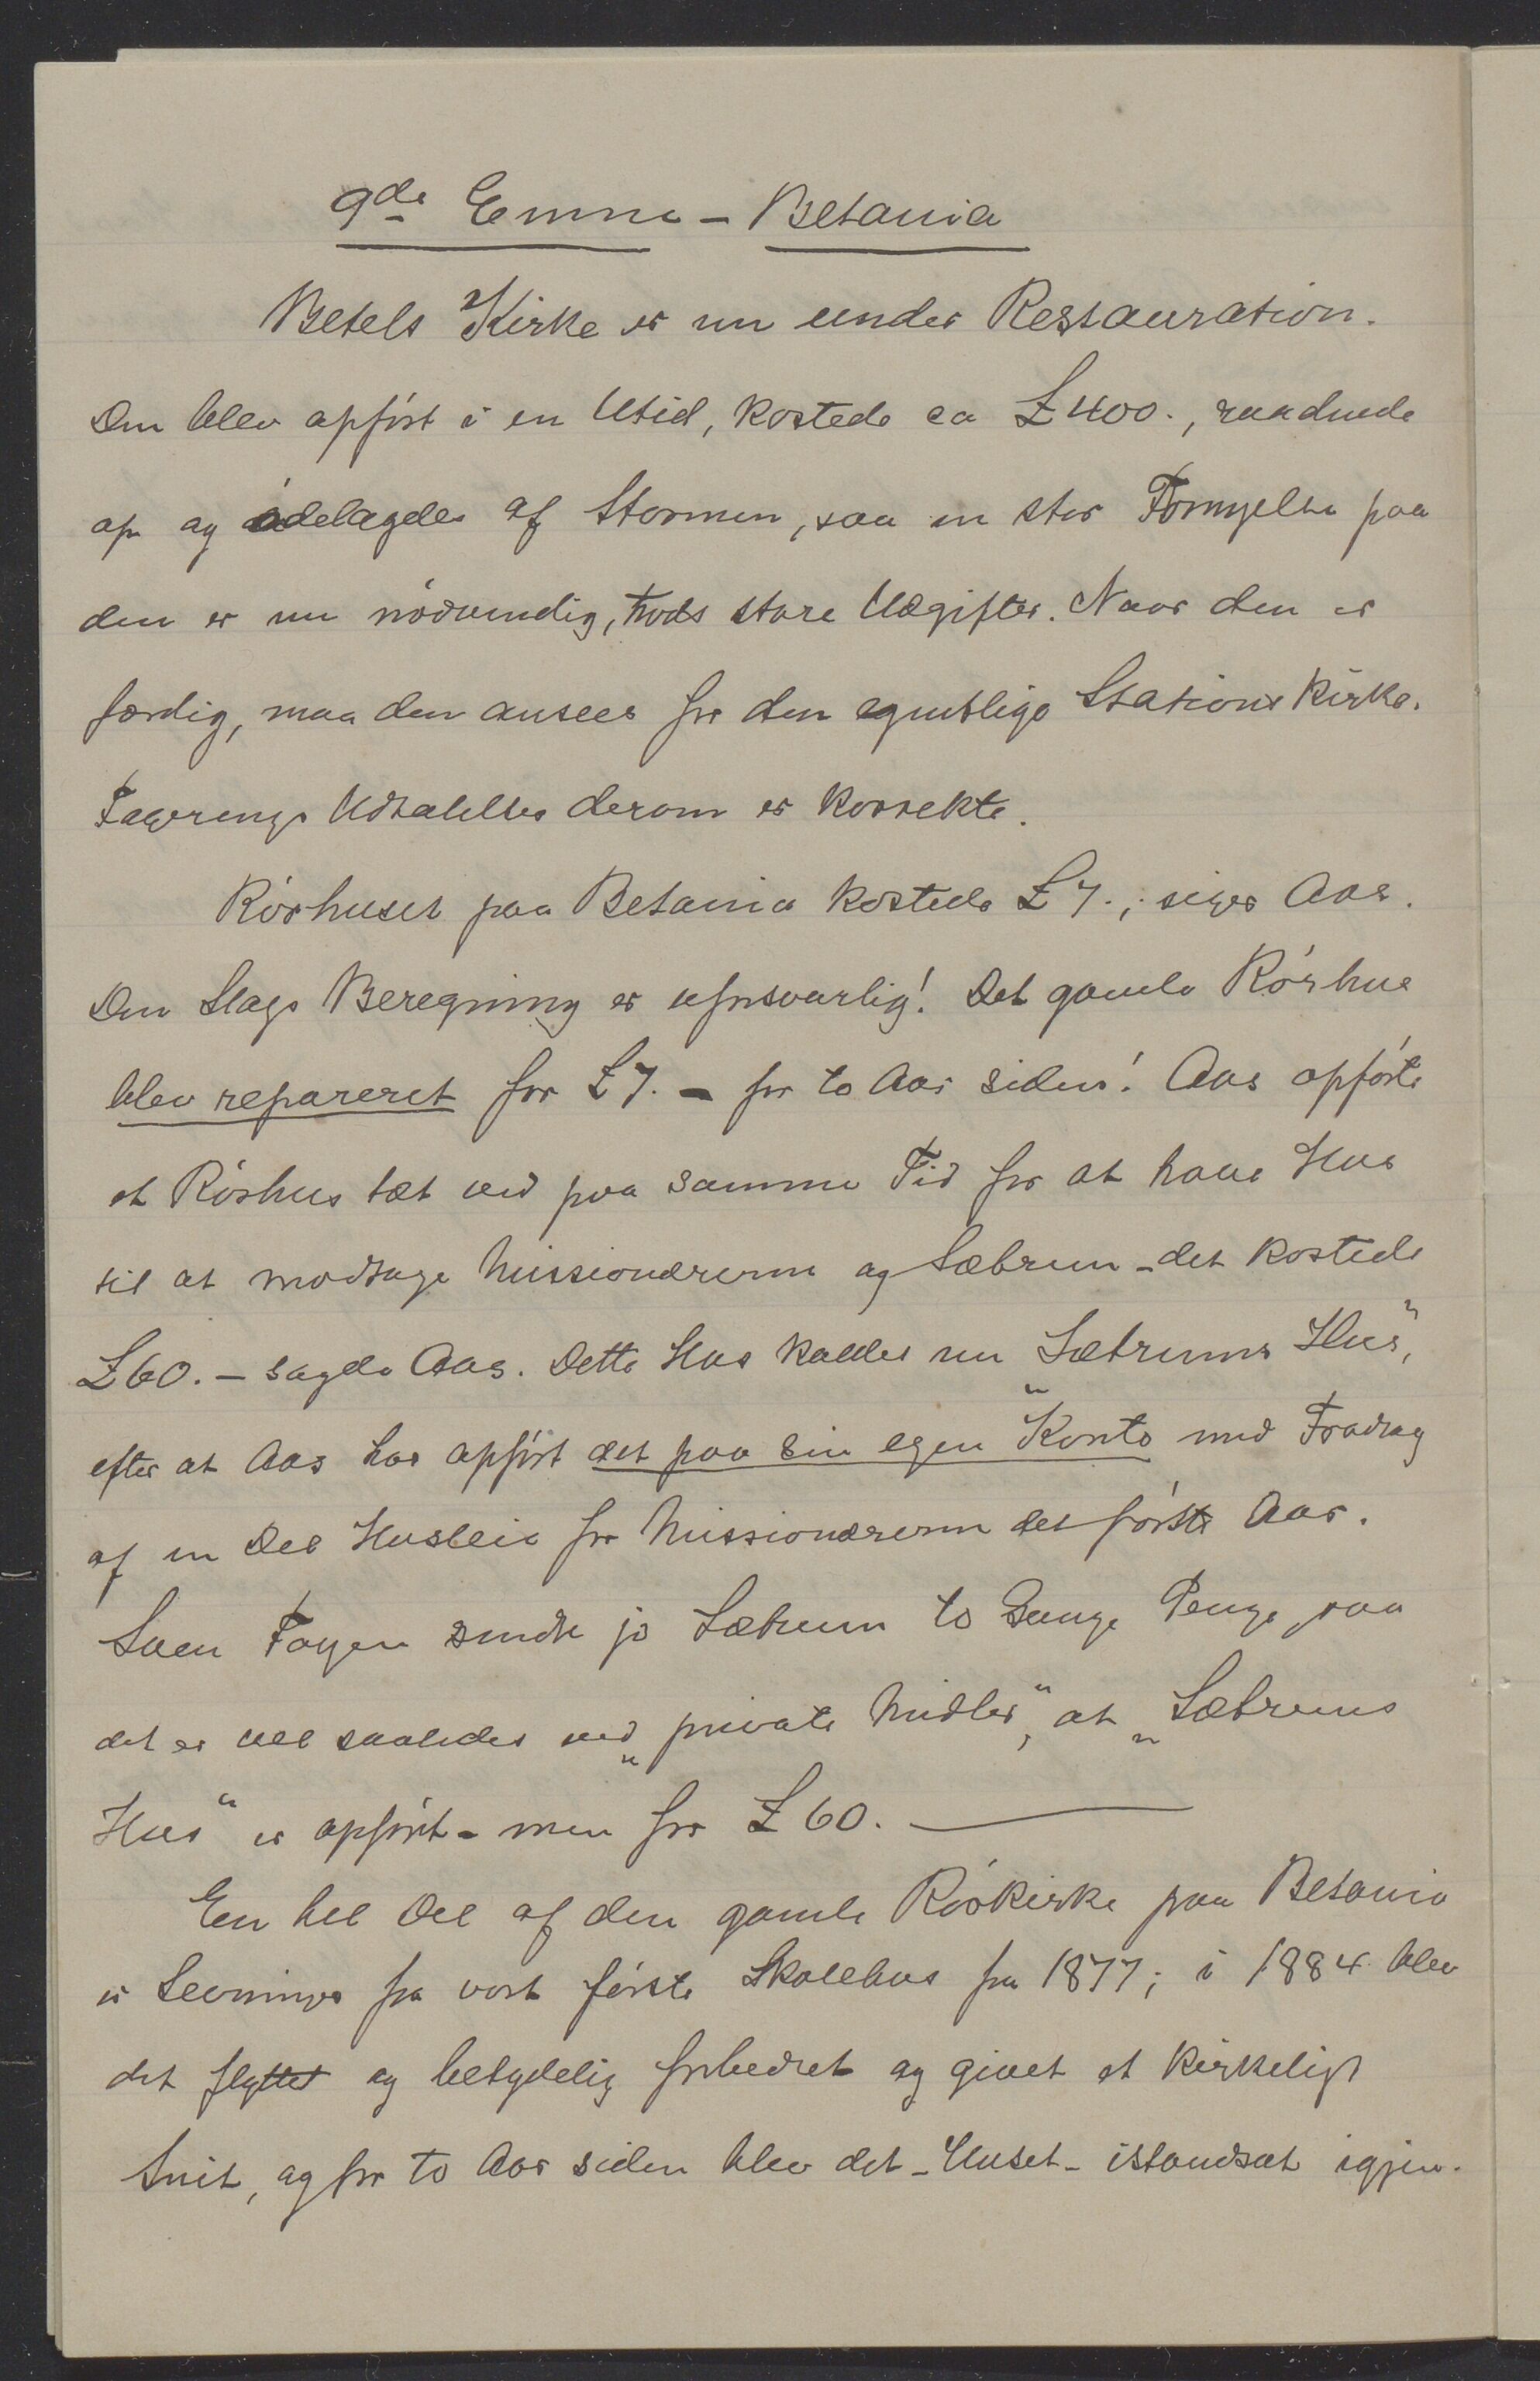 9de Emne - Betania
Betels Kirke er nu under Restauration.
Den blev opført i en Utid, kostede ca £400., raadnede
op og ódelagdes af Stormen, saa en stor Fornyelse paa
den er nu nódvendig, trods store Udgifter. Naar den er
færdig, maa den ansees for den egentlige Stations Kirke.
Udtalelser derom er korrekte.
Rórhuset paa Betania kostede £7., siger Aas.
Den Slags Beregning er uforsvarlig! Det gamle Rórhus
blev repareret for £7. - for to Aar siden! Aas opførte
et Rórhus tæt ved paa samme Tid for at have Hus
til at modtage Missionærerne og Sæbrum - det kostede
£60. - sagde Aas. Dette Hus kaldes nu „Sæbrums Hus",
efter at Aas har opført det paa sin egen Konto med Fradrag
af en Del Husleie for Missionærerne det første Aar.
Svend Foyn sendte jo Sæbrum to Gange Penge, saa
det er vel saaledes ved „private Midler", at „Sæbrums
Hus" er opført - men for £60.
En hel Del af den gamle Rórkirke paa Betania
er Levninger fra vort første Skolehus fra 1877; i 1884 blev
det flyttet og betydelig forbedret og givet et kirkeligt
Snit, og for to Aar siden blev det - Huset - istandsat igjen.